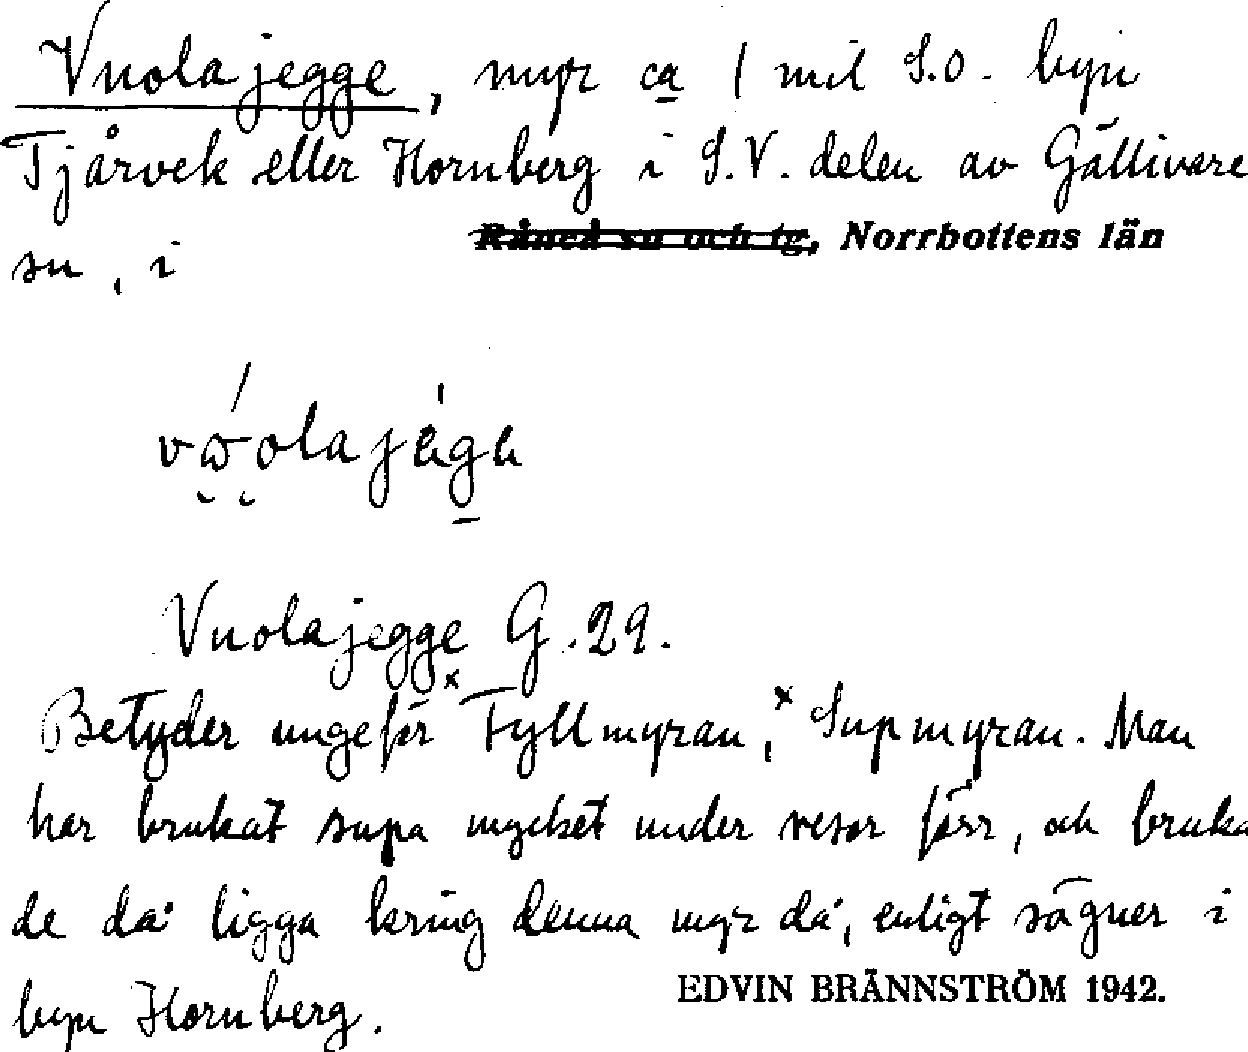 Vuolajegge, myr ca 1 mil S.O. byn
Tjårvek eller Hornberg i S.V. delen av Gällivare
Råneå sn och tg, Norrbottens län
sn, i
Vuolajegge G.29.
Betyder ungefär ˣFyllmyran, ˣSupmyran. Man
har brukat supa mycket under resor förr, och bruka
de då ligga kring denna myr då, enligt sägner i
byn Hornberg.
EDVIN BRÄNNSTRÖM 1942.